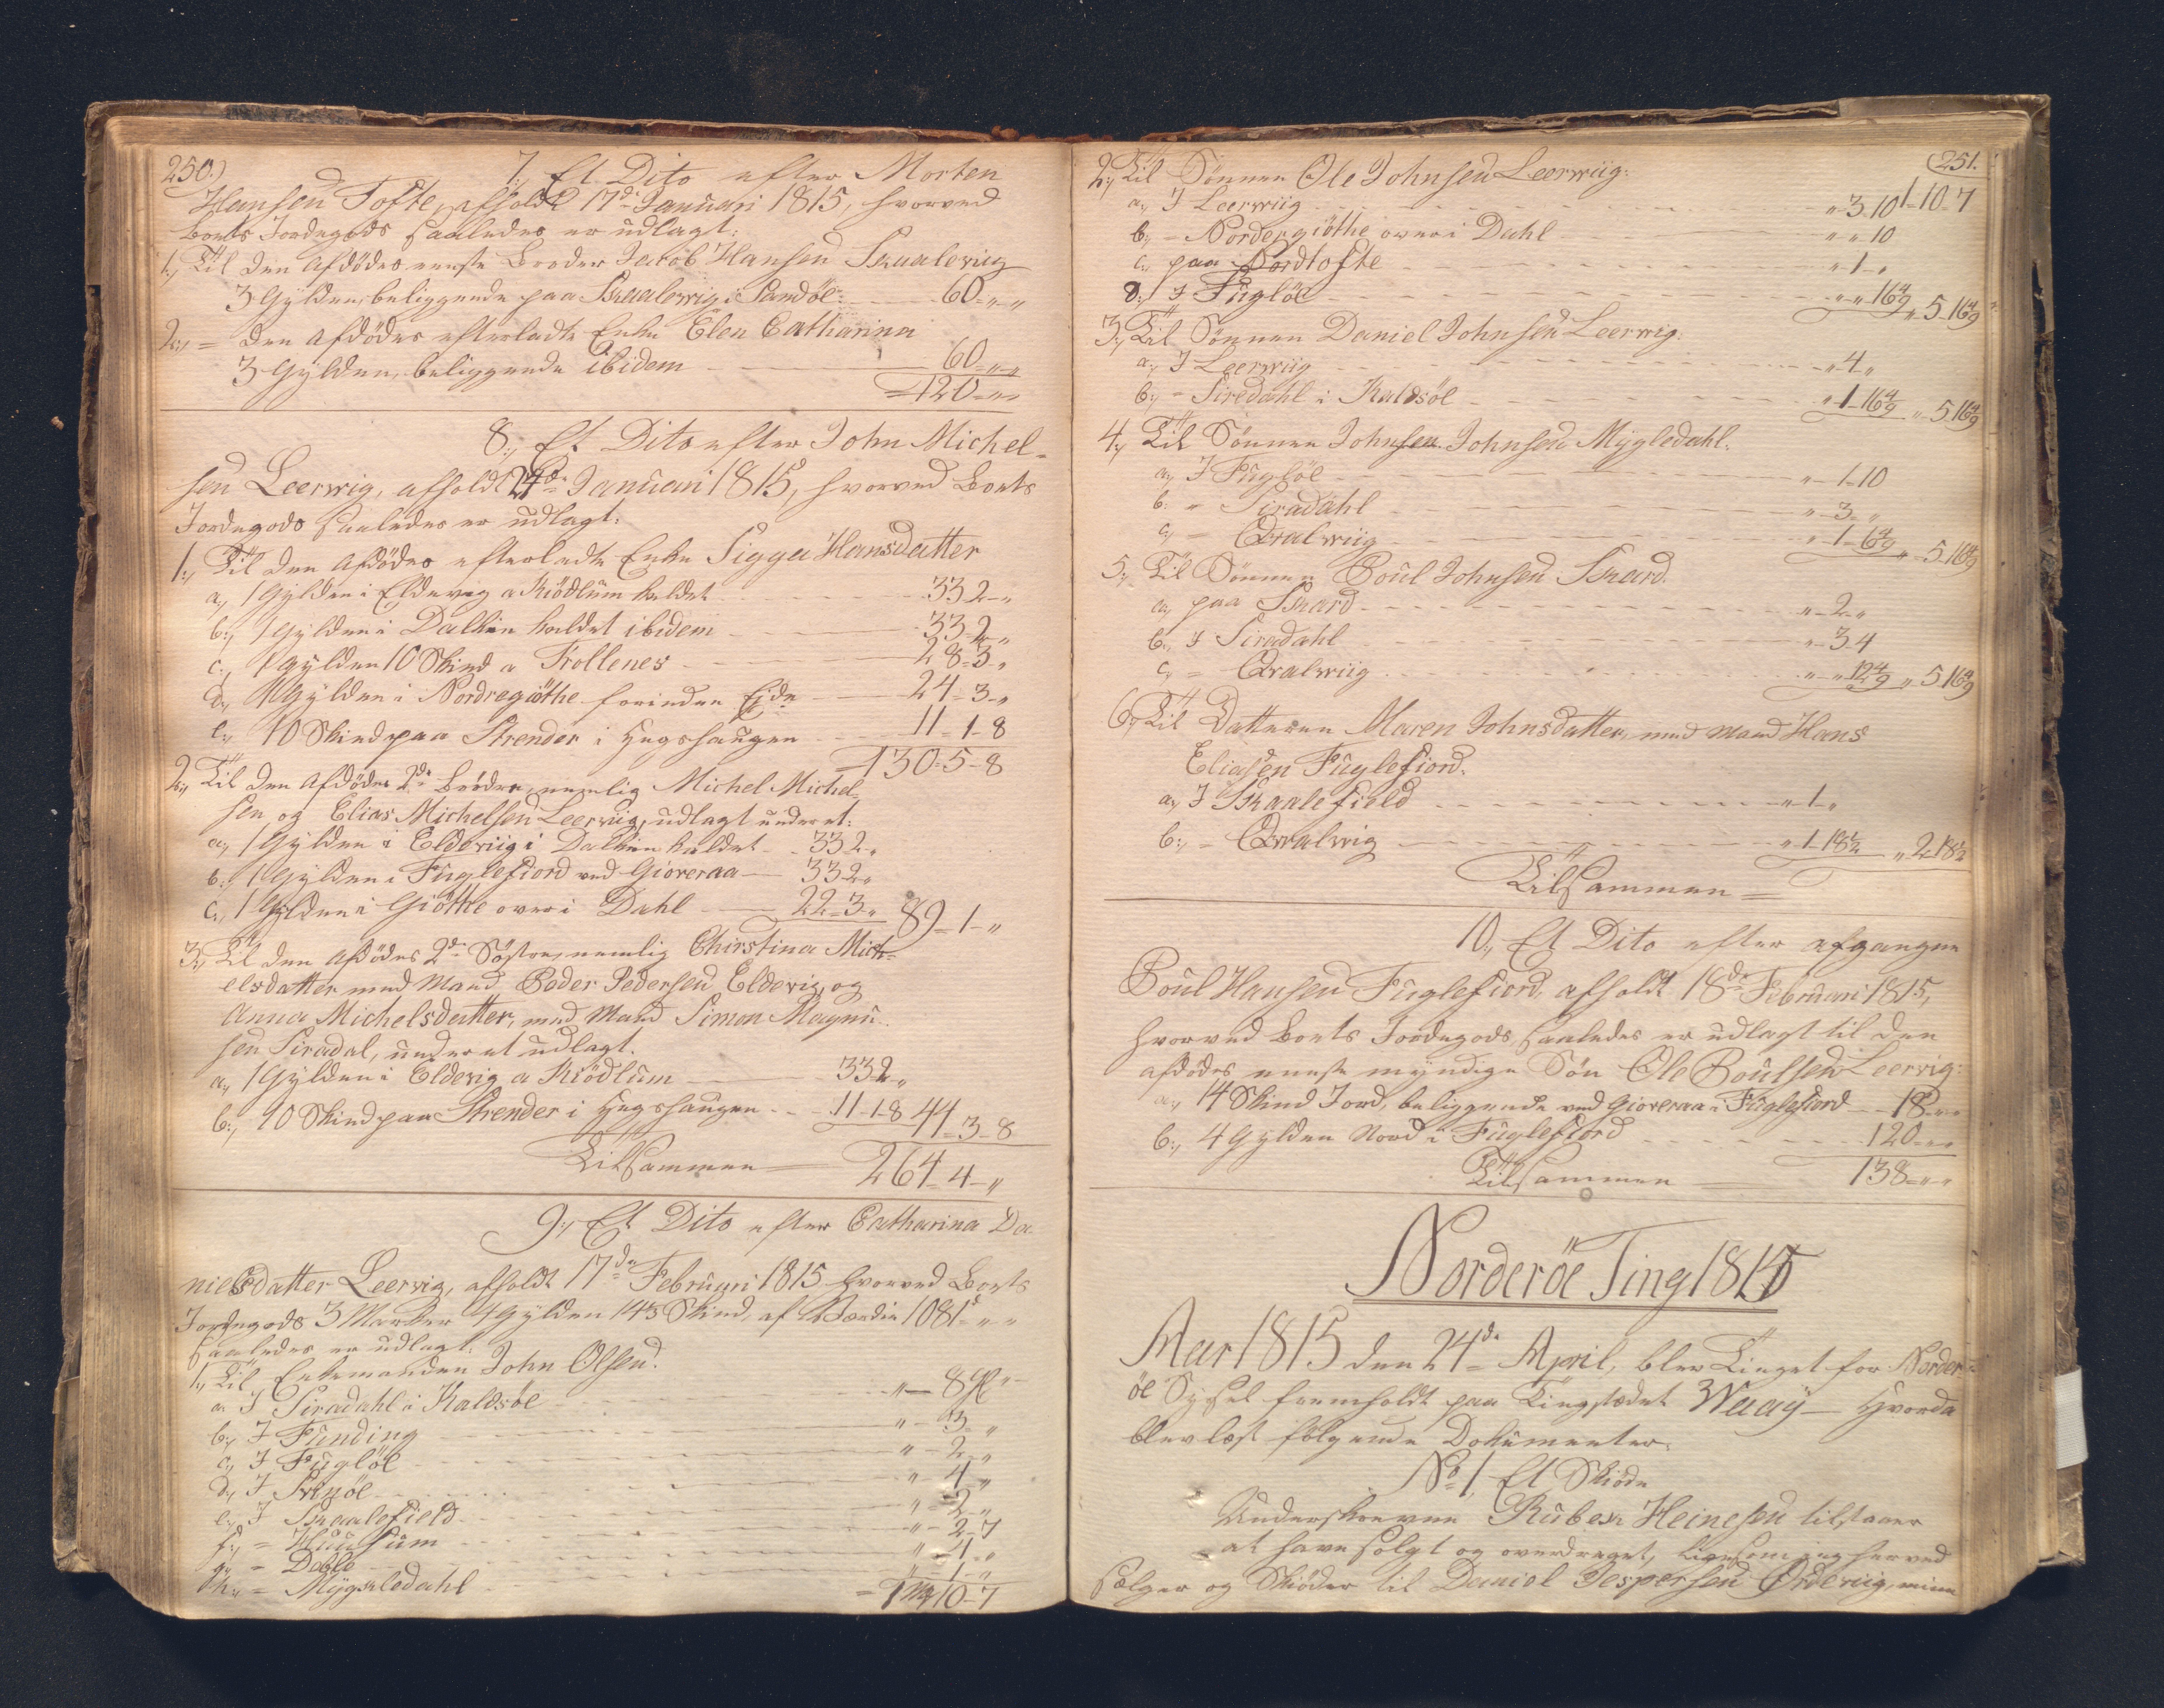 250.)
7, Et Dito efter Morten
Hansen Tofte, afholdt 17de Januari 1815, hvorved
Boets Jordegods saaledes er udlagt:
1, Til den Afdödes eneste Broder Jacob Hansen Skaalevig
3 Gylden, beliggende paa Skaalevig i Sandöe: 60 - " - "
2, = den Afdödes efterladte Enke Elen Catharina
3 Gylden, beliggende ibidem 60 - " - "
= 120 - " - "
8, Et Dito efter John Michel-
sen Leerwig, afholdt 24de Januari 1815, hvorved Boets
Jordegods saaledes er udlagt:
1, Til den Afdödes efterladte Enke Sigga Hansdatter
a, 1 Gylden i Eldevig a Kiödlum kaldet 33 2 - "
b, 1 Gylden i Dalkin kaldet ibidem 33 - 2 "
c, 1 Gylden 10 Skind a Trollenes 28 - 3 "
d, 1 Gylden i Nordregiöthe forinden Eide 24 - 3 - "
e, 10 Skind paa Strender i Hegshaugen 11 - 1 - 8
= 130 - 5 - 8
2, Til den Afdödes 2de Brödre, nemlig Michel Michel-
sen og Elias Michelsen Leervig, udlagt under et:
a, 1 Gylden i Eldeviig i Dalkin kaldet 33 2 "
b, 1 Gylden i Fuglefiord ved Gioveraa 33 2 "
c, 1 Gylden i Giöthe over i Dahl 22 - 3 " 89 - 1 - "
3, Til den Afdödes 2de Söstre, nemlig Christina Mich-
elsdatter med Mand Peder Pedersen Eldevig, og
Anna Michelsdatter, med Mand Simon Magnu-
sen Siradal, under et udlagt.
a, 1 Gylden i Eldevig a Kiödlum 33 2 "
b, 10 Skind paa Strender i Hegshaugen 11 - 1 - 8 44 - 3 - 8
Tilsammen = 264 - 4 - "
9, Et Dito efter Catharina Da-
nielsdatter Leervig, afholdt 17de Februari 1815 hvorved Boets
Jordegods 3 Marker 4 Gylden 14 Skind, af Værdie 1081 " - "
saaledes er udlagt:
1, Til Enkemanden John Olsen.
a, I Siradahl i Kaldsöe " - 8 Gl "
b, I Funding " - 3 - "
c, I Fuglöe " - 2 - "
d, I Svinöe " - 4 - "
e, I Skaalefield " - 2 - "
f, = Huusum " - 2 - 7
g, = Dable " - 1 - "
h, = Mygledahl " - 1 - "
= 1 Mk 10 - 7
(251.
1 - 10 - 7
2, Til Sönnen Ole Johnsen Leerwiig:
a, I Leerwiig " - 3 - 10
b, - Nordergiöthe over i Dahl " - " 10
c, paa Nordtofte " - 1 - "
d, I Fuglöe " - " 16 4/9 " 5 - 16 4/9
3, Til Sönnen Daniel Johnsen Leerwig.
a, I Leerwiig " - 4 - "
b, - Siredahl i Kaldsöe " - 1 - 16 4/9 " - 5 16 4/9
4, Til Sönnen Johnsen Johnsen Mygledahl.
a, I Fuglöe " - 1 - 10
b, " Siradahl " - 3 - "
c, = Qvalwiig " - 1 - 6 4/9 " - 5 - 16 4/9
5, Til Sönnen Poul Johnsen Skard.
a, paa Skard " - 2 - "
b, I Siradahl " - 3 4
c, = Qvalwiig " - " 12 4/9 " 5 16 4/9
6, Til Datteren Maren Johnsdatter, med Mand Hans
Eliasen Fuglefiord.
a, I Skaalefield " - 1 - "
b, = Qvalvig " - 1 - 18 1/2 " 2 - 18 1/2
Tilsammen =
10, Et Dito efter afgangne
Poul Hansen Fuglefiord, afholdt 18de Februari 1815,
hvorved Boets Jordegods, saaledes er udlagt til den
afdödes eneste myndige Sön Ole Poulsen Leervig:
a, 14 Skind Jord, beliggende ved Gioveraa i Fuglefiord 18 - " - "
b, 4 Gylden Nord i Fuglefiord 120 - " - "
Tilsammen 138 - " - "
Norderöe Ting 1815
Aar 1815 den 24de April, blev Tinget for Norder-
öe Sysel fremholdt paa Tingstædet Waaÿ - Hvorda
blev læst følgende Dokumenter
No 1, Et Skiöde
Underskrevne Ruben Heinesen tilstaaer
at have solgt og overdraget, ligesom jeg herved
sælger og Skiöder til Daniel Jespersen Ordeviig, mine